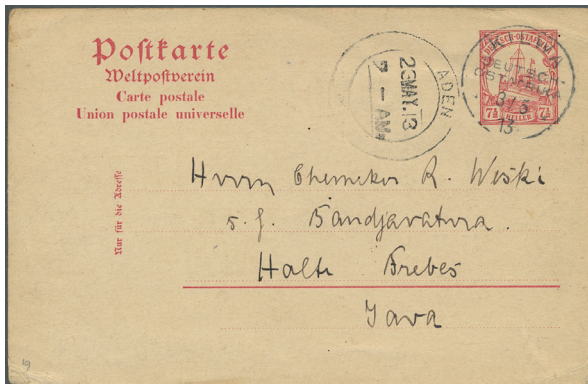 Postkarte
Weltpostverein
Carte postale
Union postale universelle
ADEN
23 MAY.13
7 - AM
DEUTSCH-OSTAFRIKA
7½ HELLER 7½
DEUTSCH-
OSTAFRIKA
8/5
13
Nur für die Adresse
Herrn Chemiker R. Weski
s. f. Bandjaratma
Halte Brebes
Java
19